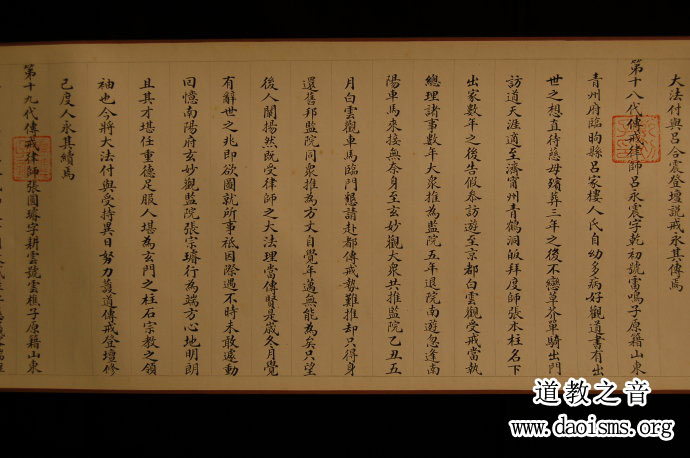 大法付與呂合震登壇說戒永其傳焉
第十八代傳戒律師呂永震字乾初號雷鳴子原籍山東
青州府臨朐縣呂家樓人氏自幼多病好觀道書有出
世之想直待慈母殯葬三年之後不戀草芥單騎出門
訪道天涯適至濟甯州青鶴洞皈拜度師張本柱名下
出家數年之後告假叅訪遊至京都白雲觀受戒當執
總理諸事數年大衆推為監院五年退院南遊忽逢南
陽車馬來接無奈身至玄妙觀大衆共推監院乙丑五
月白雲觀車馬臨門懇請赴都傳戒勢難推却只得身
還舊邦監院同衆推為方丈自覺年邁無能為矣只望
後人闡揚然既受律師之大法理當傳賢是歲冬月覺
有辭世之兆即欲圖就所事祇因際遇不時未敢遽動
回憶南陽府玄妙觀監院張宗璿行為端方心地明朗
且其才堪任重德足服人堪為玄門之柱石宗教之領
袖也今將大法付與受持異日努力蓂道傳戒登壇修
己度人永其續焉
第十九代傳戒律師張圓璿字耕雲號雲樵子原籍山東
道教之音
www.daoisms.org